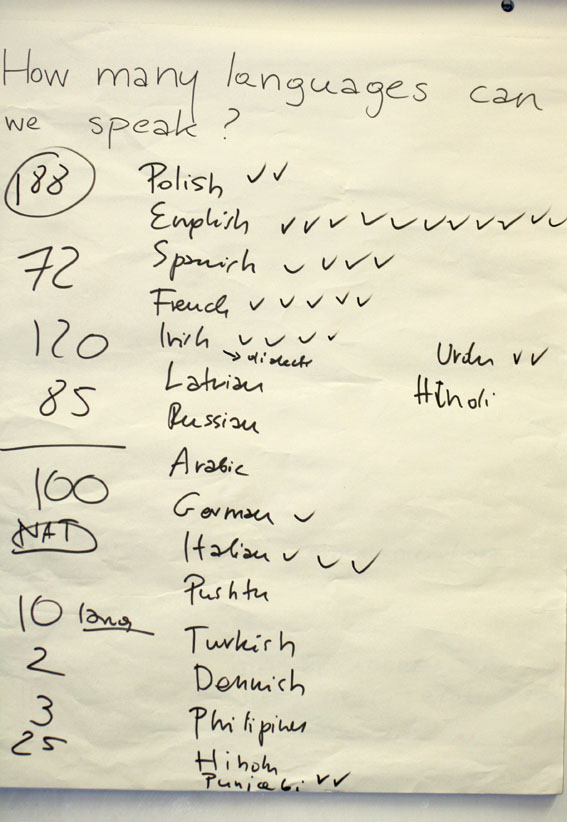 How many languages can
we speak?
188
72
120
85
100
NAT
10 lang
2
3
25
Polish ✓✓
English ✓✓✓✓✓✓✓✓✓✓
Spanish ✓✓✓✓
French ✓✓✓✓✓
Irish ✓✓✓✓
→ dialects
Latvian
Russian
Arabic
German ✓
Italian ✓✓✓
Pushtu
Turkish
Dennish
Philipines
Hindu
Punjabi ✓✓
Urdu ✓✓
Hindi